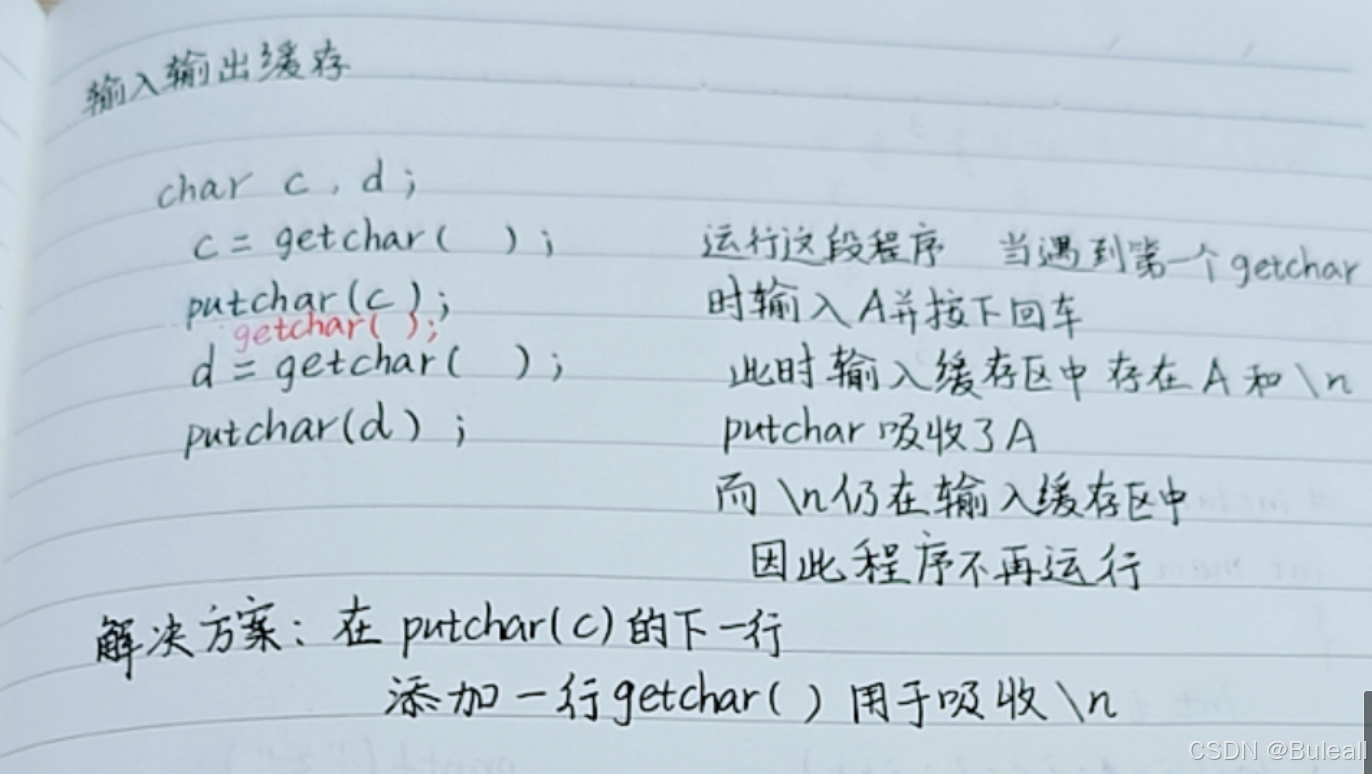 输入输出缓存
char c , d ;
c = getchar( ) ;
运行这段程序 当遇到第一个getchar
putchar(c );
时输入A并按下回车
getchar( );
d = getchar( ) ;
此时输入缓存区中存在A和\n
putchar(d) ;
putchar吸收了A
而\n仍在输入缓存区中
因此程序不再运行
解决方案：在putchar(c)的下一行
添加一行getchar( )用于吸收\n
CSDN @Buleall